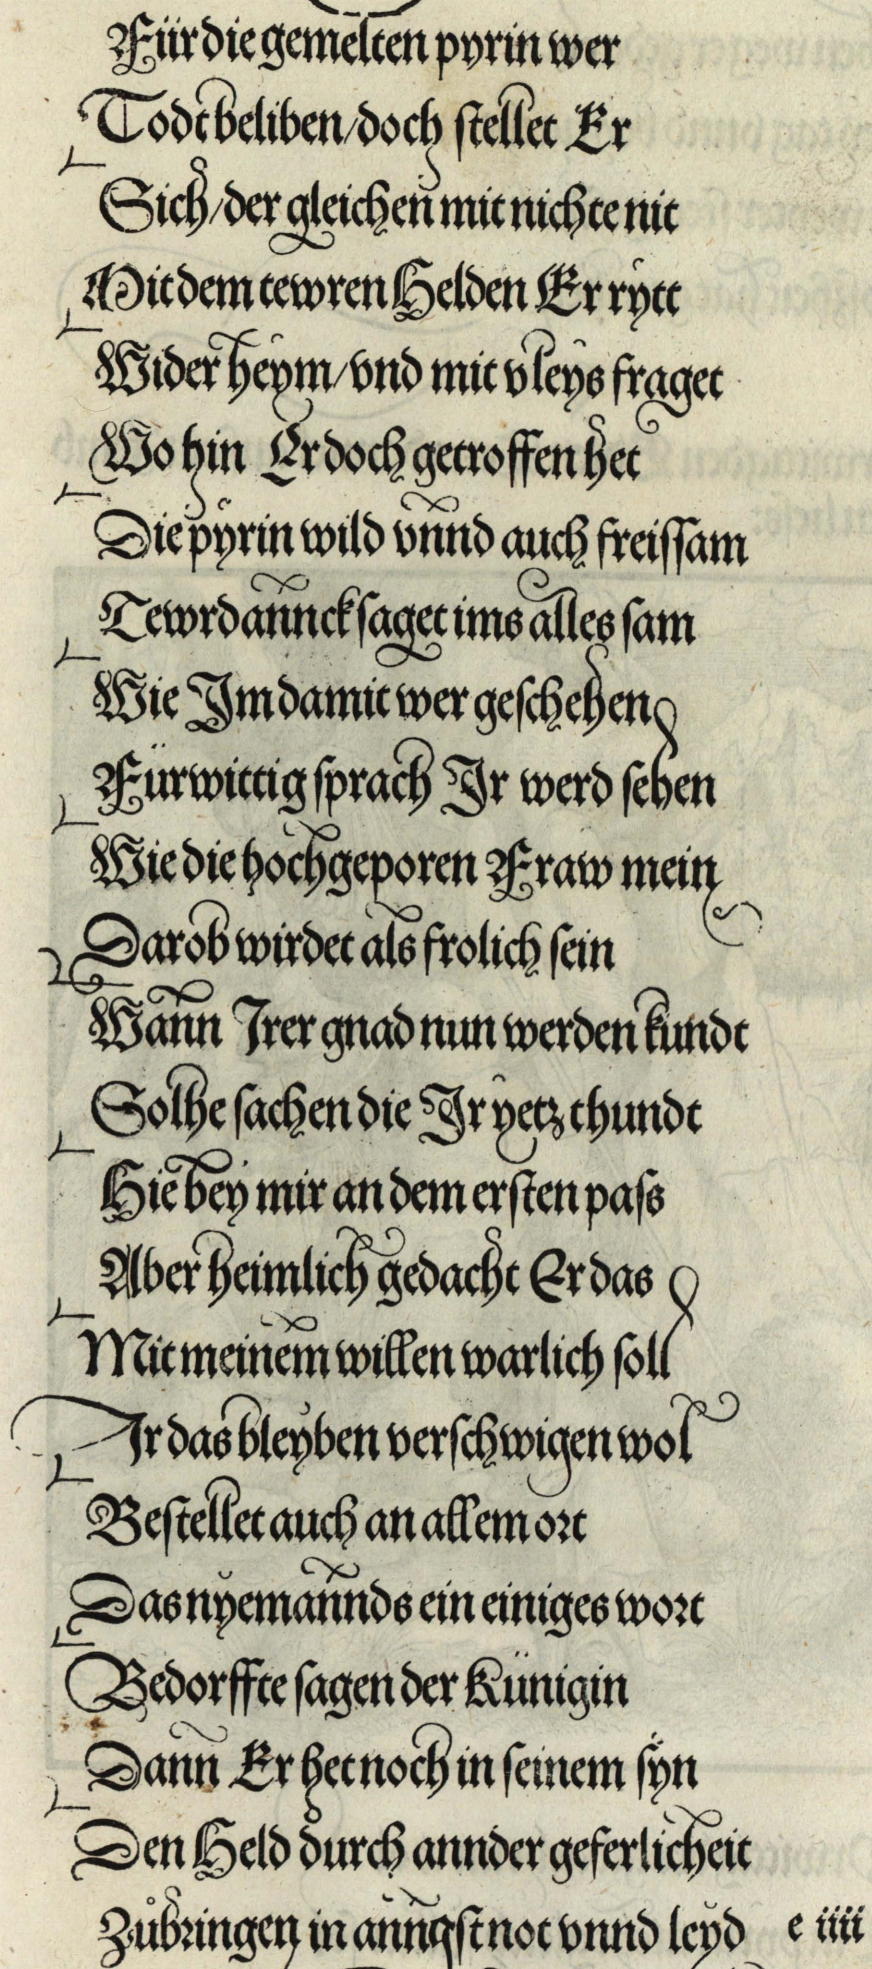 Für die gemelten pyrin wer
Todt beliben/doch stellet Er
Sich/der gleichen mit nichte nit
Mit dem tewren Helden Er rytt
Wider heym/vnd mit vleys fraget
Wo hin Er doch getroffen het
Die pyrin wild vnnd auch freissam
Tewrdannck saget ims alles sam
Wie Im damit wer geschehen
Fürwittig sprach Ir werd sehen
Wie die hochgeporen Fraw mein
Darob wirdet als frolich sein
Wann Irer gnad nun werden kundt
Solhe sachen die Ir yetz thundt
Hie bey mir an dem ersten pass
Aber heimlich gedacht Er das
Mit meinem willen warlich soll
Ir das bleyben verschwigen wol
Bestellet auch an allem ort
Das nyemannds ein einiges wort
Bedorffte sagen der Künigin
Dann Er het noch in seinem syn
Den Held durch annder geferlicheit
Zůbringen in anngst not vnnd leyd e iiii